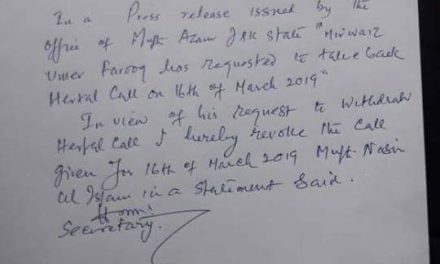 In a Press release issued by the
Office of Mufti Azam J&K State "Mirwaiz
Umer Farooq has requested to take back
Hertal Call on 16th of March 2019"
In view of his request to withdraw
Hertal Call I hereby revoke the Call
given for 16th of March 2019 Mufti Nasir
ul Islam in a Statement Said.
Secretary.